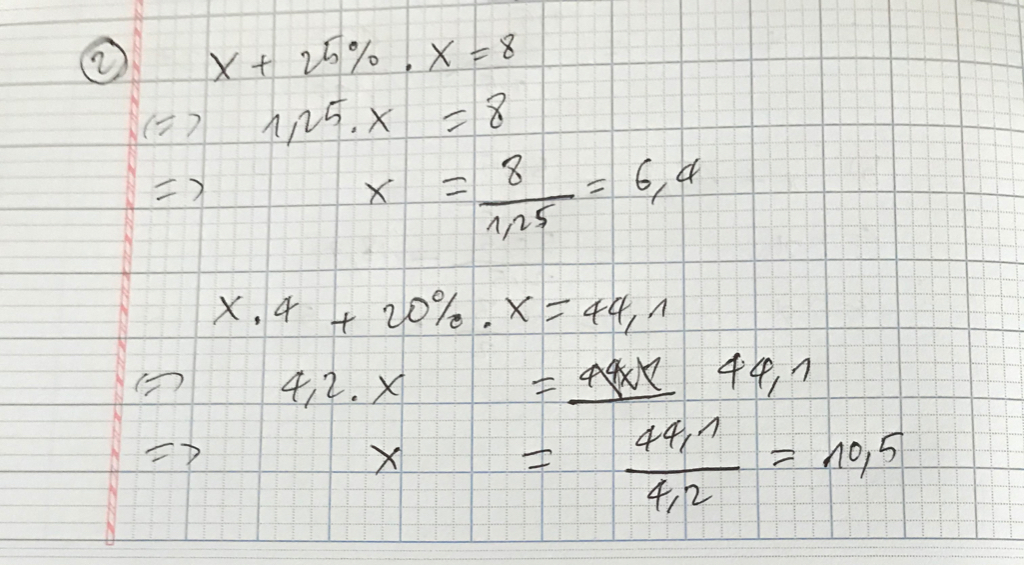 ② x + 25% . x = 8
<=> 1,25 . x = 8
=> x = 8/1,25 = 6,4
x . 4 + 20% . x = 44,1
<=> 4,2 . x = 44,1
=> x = 44,1/4,2 = 10,5